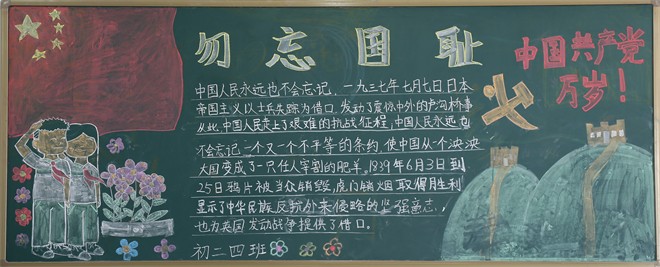 勿忘国耻
中国共产党
万岁！
中国人民永远也不会忘记，一九三七年七月七日，日本
帝国主义以士兵失踪为借口，发动了震惊中外的卢沟桥事
从此，中国人民走上了艰难的抗战征程，中国人民永远也
不会忘记一个又一个不平等的条约，使中国从个泱泱
大国变成了一只任人宰割的肥羊。1839年6月3日到
25日鸦片被当众销毁，虎门销烟取得胜利
显示了中华民族反抗外来侵略的坚强意志，
也为英国发动战争提供了借口。
初二四班